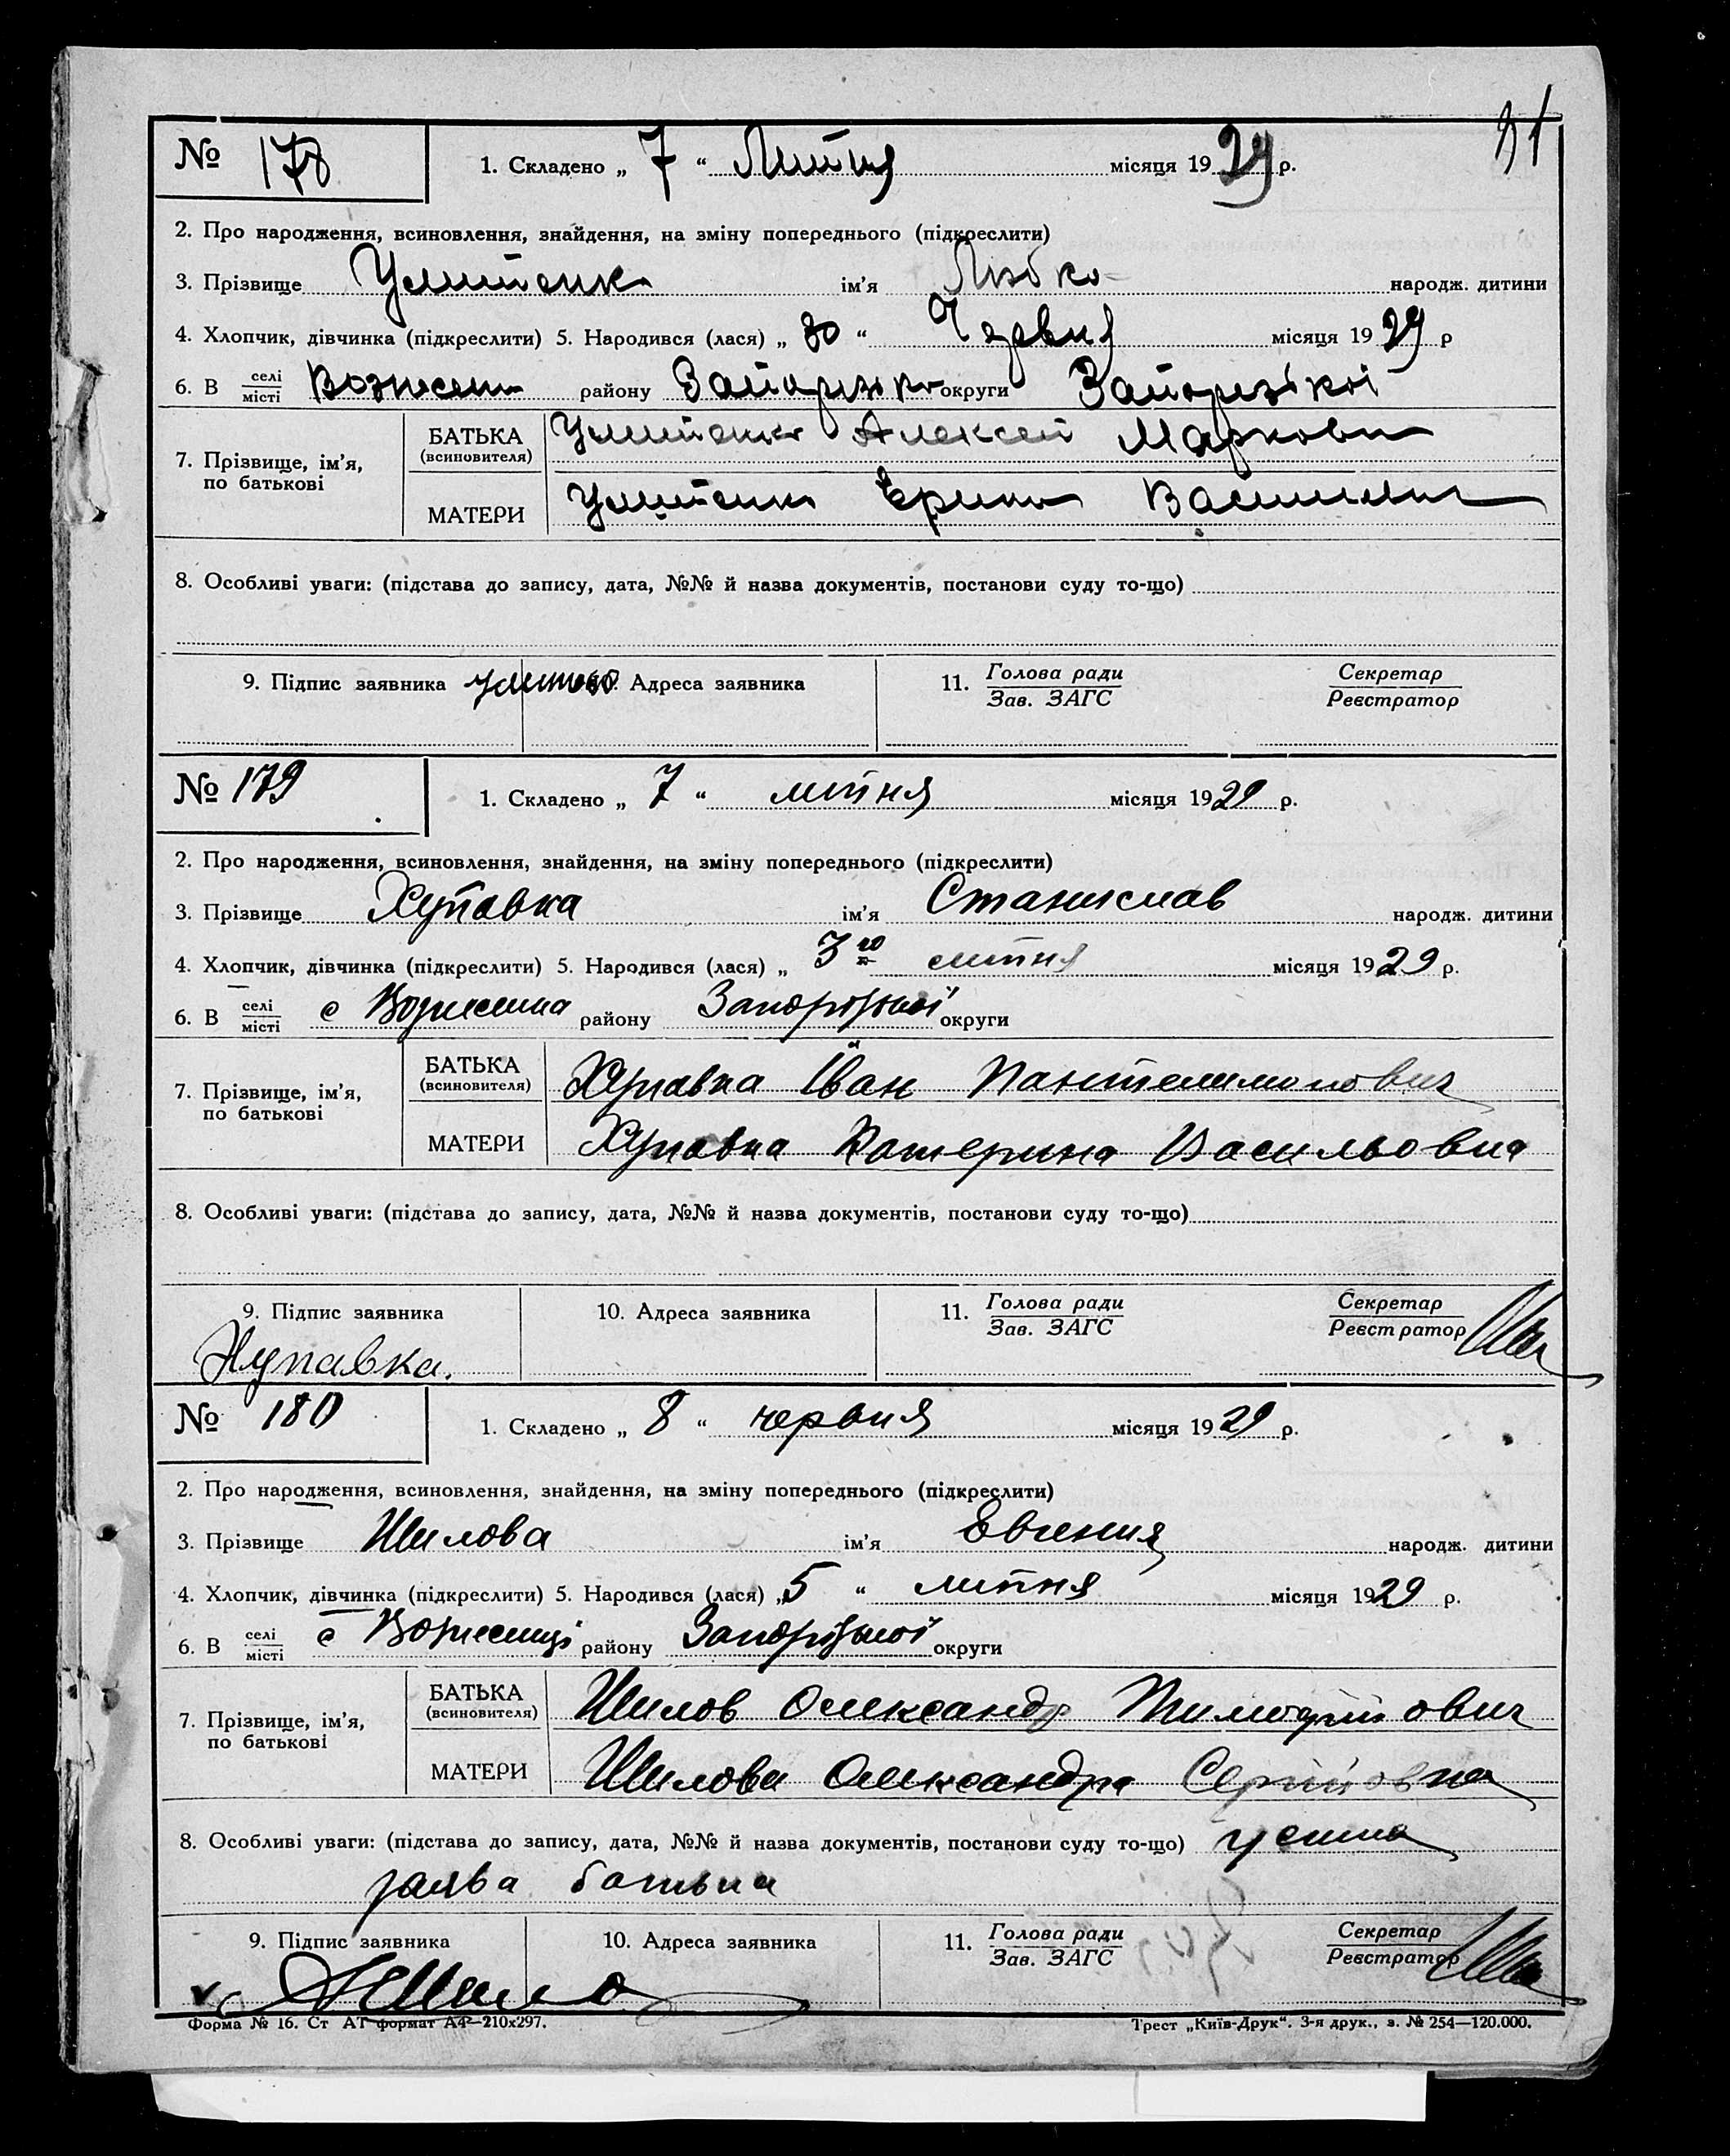 91
№ 178
1. Складено „ 7 “ Липня місяця 1929 р.
2. Про народження, всиновлення, знайдення, на зміну попереднього (підкреслити)
3. Прізвище ім'я народж. дитини
4. Хлопчик, дівчинка (підкреслити) 5. Народився (лася) „ 30 “ Червня місяця 1929 р
6. В селі Вознесен району Запорізько округи Запорізької
місті
7. Прізвище, ім'я, по батькові
БАТЬКА (всиновителя) Алексей Маркови
МАТЕРИ
8. Особливі уваги: (підстава до запису, дата, №№ й назва документів, постанови суду то-що)
9. Підпис заявника 10. Адреса заявника 11. Голова ради Секретар
Зав. ЗАГС Реєстратор
№ 179
1. Складено „ 7 “ липня місяця 1929 р.
2. Про народження, всиновлення, знайдення, на зміну попереднього (підкреслити)
3. Прізвище Хупавка ім'я Станислав народж. дитини
4. Хлопчик, дівчинка (підкреслити) 5. Народився (лася) „ 3го липня місяця 1929 р.
6. В селі с Вознесенка району Запорізької округи
місті
7. Прізвище, ім'я, по батькові
БАТЬКА (всиновителя) Хупавка Іван Пантелимонович
МАТЕРИ Хупавка Катерина Васильовна
8. Особливі уваги: (підстава до запису, дата, №№ й назва документів, постанови суду то-що)
9. Підпис заявника 10. Адреса заявника 11. Голова ради Секретар
Зав. ЗАГС Реєстратор
Хупавка.
№ 180
1. Складено „ 8 “ червня місяця 1929 р.
2. Про народження, всиновлення, знайдення, на зміну попереднього (підкреслити)
3. Прізвище Шилова ім'я Евгения народж. дитини
4. Хлопчик, дівчинка (підкреслити) 5. Народився (лася) „ 5 “ липня місяця 1929 р.
6. В селі с Вознесенці району Запорізької округи
місті
7. Прізвище, ім'я, по батькові
БАТЬКА (всиновителя) Шилов Олександр Тимофійович
МАТЕРИ Шилова Олександра Сергійовна
8. Особливі уваги: (підстава до запису, дата, №№ й назва документів, постанови суду то-що) усина
заява батька
9. Підпис заявника 10. Адреса заявника 11. Голова ради Секретар
Зав. ЗАГС Реєстратор
Форма № 16. Ст АТ формат А4—210х297. Трест „Київ-Друк“. 3-я друк., з. № 254—120.000.